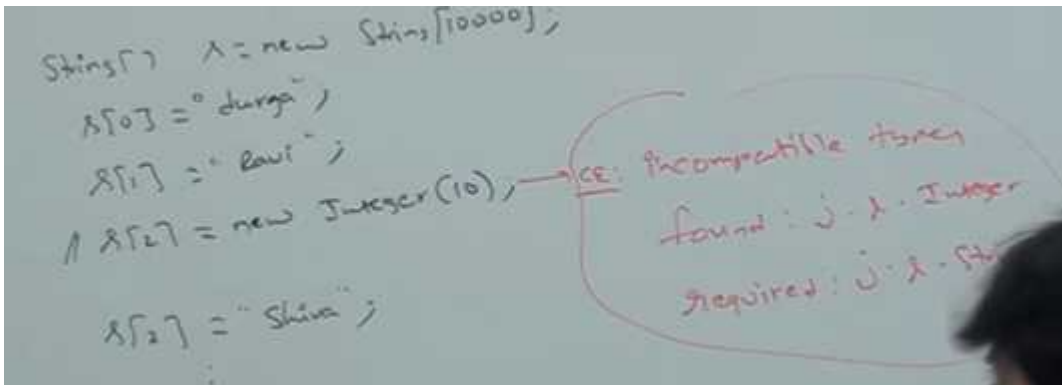 String[] s = new String[10000];
s[0] = "durga";
s[1] = "Ravi";
s[2] = new Integer(10); → CE: incompatible types
found: j.l.Integer
required: j.l.Str
s[2] = "Shiva";